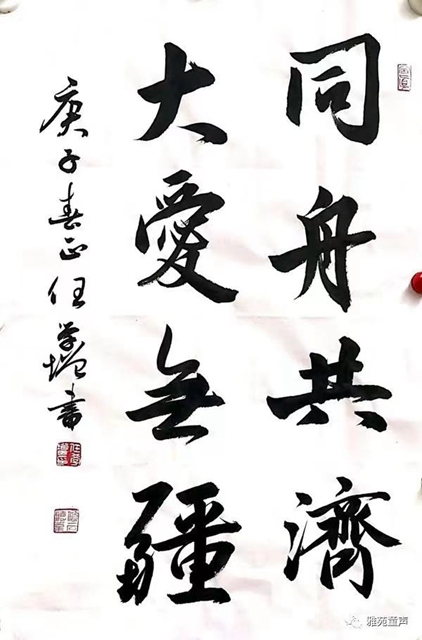 同舟共濟
大愛無疆
庚子春正任学增書
雅苑童声